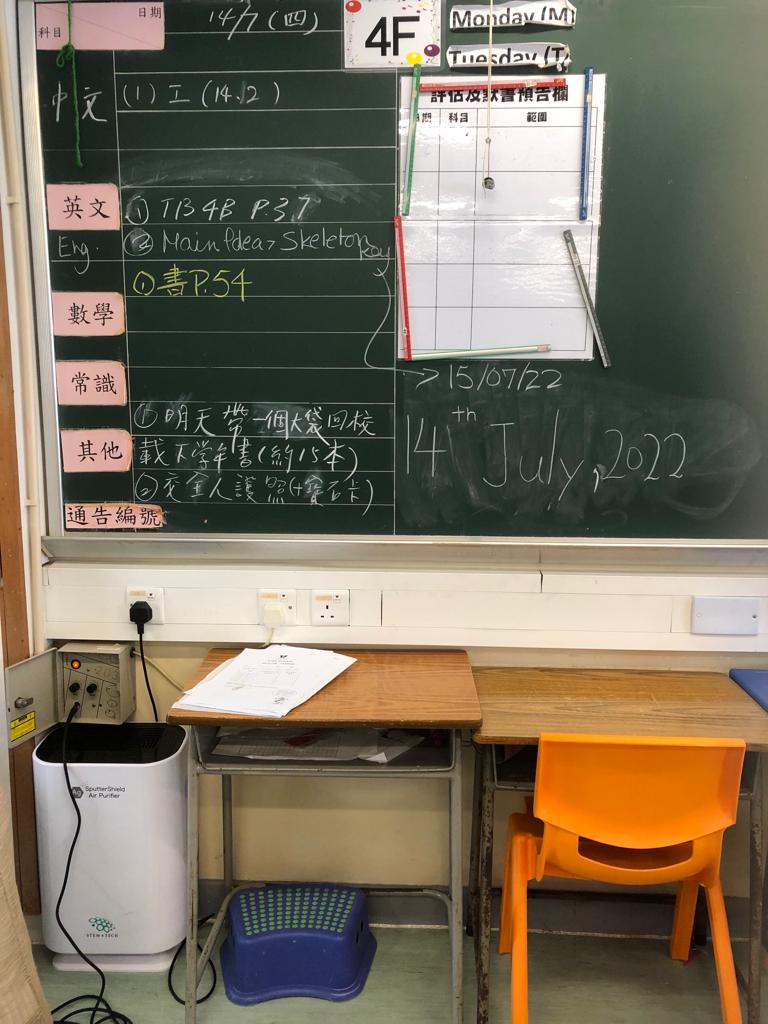 日期
科目
14/7 (四)
4F
Monday (M
Tuesday (T
中文
(1) 工 (14.12)
評估及默書預告欄
日期 科目 範圍
英文
① TB 4B P.37
Eng.
② Main Idea > Skeleton Key
① 書 P.54
數學
常識
→ 15/07/22
14th July, 2022
其他
① 明天帶一個大袋回校
載下學年書 (約15本)
② 交全人護照 (+寶石卡)
通告編號
SputterShield
Air Purifier
STEM+TECH